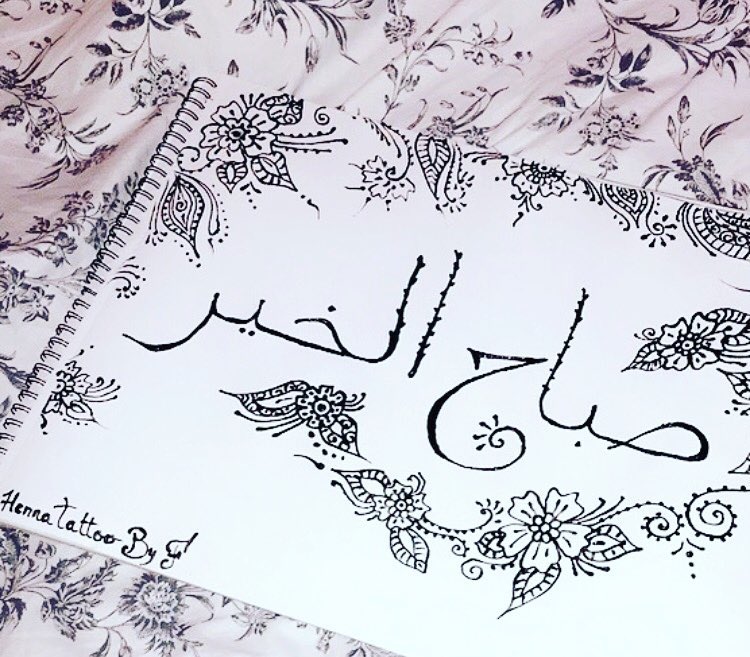 صباح الخير
Henna Tattoo By